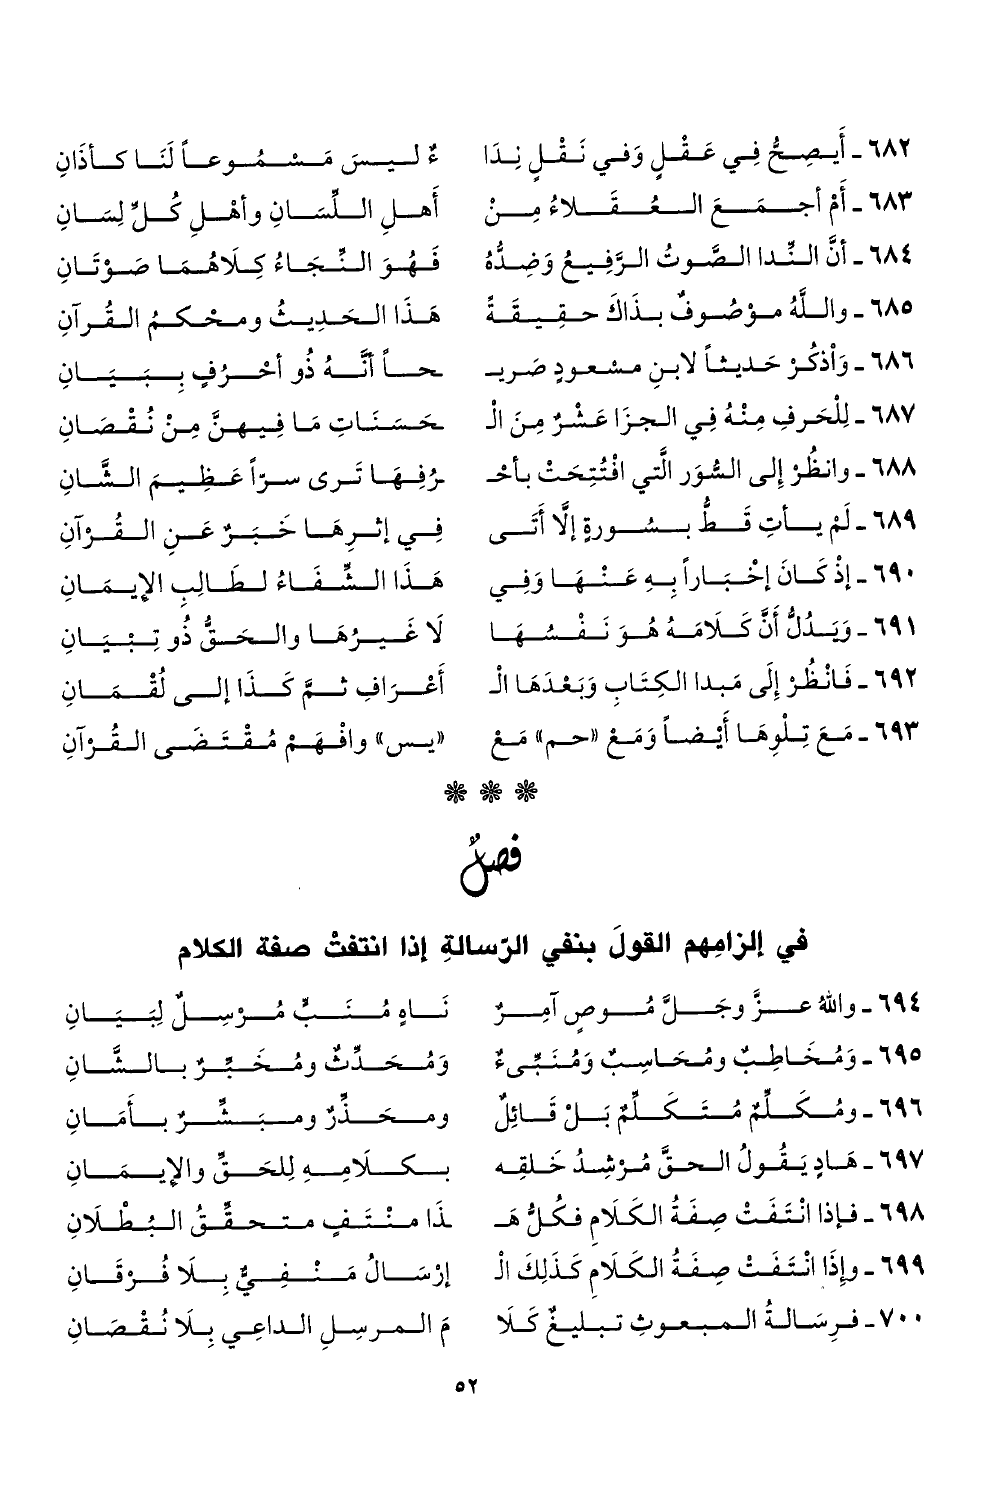 ٦٨٢ ـ أَيَصِحُّ فِي عَقْلٍ وَفي نَقْلٍ نِدَا ءٌ ليسَ مَسْمُوعاً لَنَا كآذَانِ
٦٨٣ ـ أَمْ أجمَعَ العُقَلاءُ مِنْ أَهلِ اللِّسَانِ وأهْلِ كُلِّ لِسَانِ
٦٨٤ ـ أنَّ النِّدا الصَّوتُ الرَّفيعُ وَضِدُّهُ فَهُوَ النِّجَاءُ كِلَاهُمَا صَوْتَانِ
٦٨٥ ـ واللَّهُ موْصُوفٌ بذَاكَ حقِيقَةً هَذَا الحَديثُ ومحْكمُ القُرآنِ
٦٨٦ ـ وَأذكُرْ حَديثاً لابنِ مسْعودٍ صَريـ ـحاً أنَّهُ ذُو أحْرُفٍ بِبَيَانِ
٦٨٧ ـ لِلْحَرفِ مِنْهُ فِي الجزَا عَشْرٌ مِنَ الْـ ـحَسَنَاتِ مَا فِيهنَّ مِنْ نُقْصَانِ
٦٨٨ ـ وانظُرْ إلى السُّوَرِ الَّتي افْتُتِحَتْ بأحْـ ـرُفِهَا تَرى سرّاً عَظِيمَ الشَّانِ
٦٨٩ ـ لَمْ يأتِ قَطُّ بسُورةٍ إلَّا أتَى فِي إثْرِهَا خَبَرٌ عَنِ القُرْآنِ
٦٩٠ ـ إذْ كَانَ إخْبَاراً بِهِ عَنْهَا وَفِي هَذَا الشِّفَاءُ لطَالِبِ الإيمَانِ
٦٩١ ـ وَيَدُلُّ أنَّ كَلَامَهُ هُوَ نَفْسُهَا لَا غَيرُهَا والحَقُّ ذُو تِبْيَانِ
٦٩٢ ـ فَانْظُرْ إلَى مَبدا الكِتَابِ وَبَعْدَهَا الْـ أَعْرَافِ ثمَّ كَذَا إلى لُقْمَانِ
٦٩٣ ـ مَعَ تِلْوِهَا أَيْضاً وَمَعْ «حم» مَعْ «يس» وافْهَمْ مُقْتَضَى القُرْآنِ
***
فصلٌ
في إلزامِهم القولَ بنفي الرّسالةِ إذا انتفتْ صفة الكلام
٦٩٤ ـ واللهُ عزَّ وجَلَّ مُوصٍ آمِرٌ نَاهٍ مُنَبٍّ مُرْسِلٌ لِبَيَانِ
٦٩٥ ـ وَمُخَاطِبٌ ومُحَاسِبٌ وَمُنَبِّىءٌ وَمُحَدِّثٌ ومُخَبِّرٌ بالشَّانِ
٦٩٦ ـ ومُكَلِّمٌ مُتَكَلِّمٌ بَلْ قَائِلٌ ومحَذِّرٌ ومبَشِّرٌ بأمَانِ
٦٩٧ ـ هَادٍ يَقُولُ الحقَّ مُرْشِدُ خَلقِهِ بكَلَامِهِ لِلحَقِّ والإيمَانِ
٦٩٨ ـ فإذا انْتَفَتْ صِفَةُ الكَلَامِ فكُلُّ هَـ ـذَا منْتَفٍ متحقِّقُ البُطْلَانِ
٦٩٩ ـ وإِذَا انْتَفَتْ صِفَةُ الكَلَامِ كَذَلِكَ الْـ إرْسَالُ مَنْفِيٌّ بِلَا فُرْقَانِ
٧٠٠ ـ فرِسَالةُ المبعوثِ تبليغٌ كَلَا مَ المرسِلِ الداعِي بِلَا نُقْصَانِ
٥٢